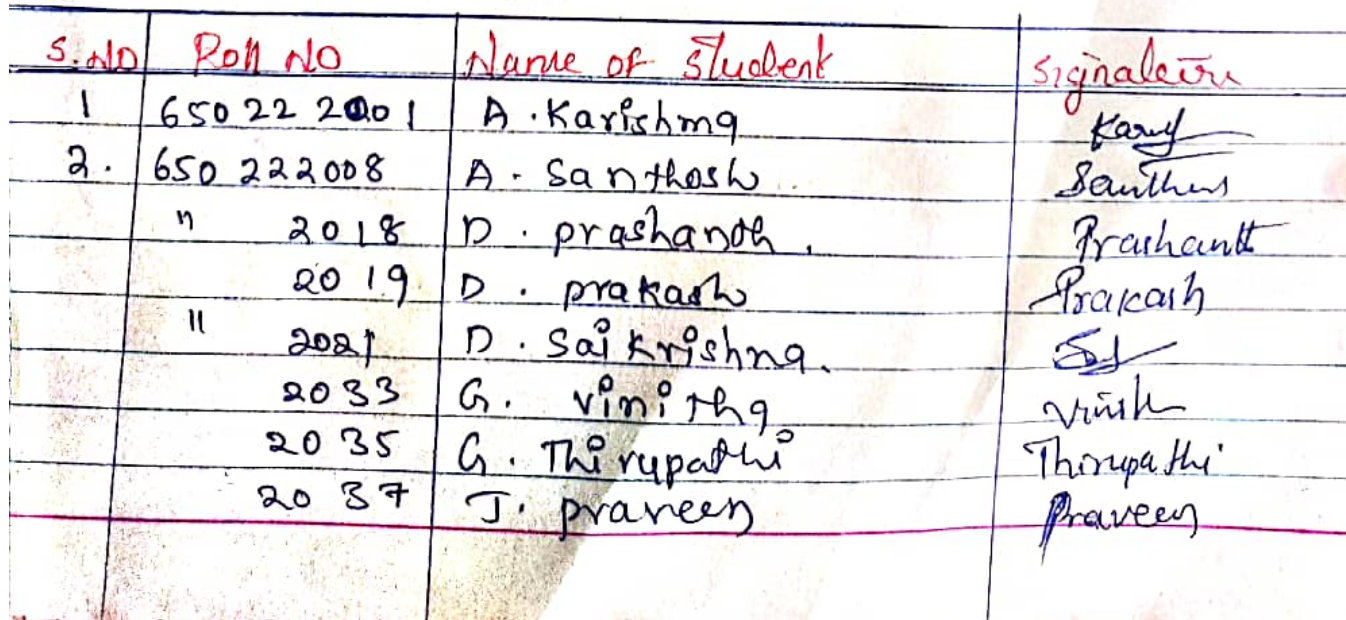 S.NO Roll NO Name of Student Signature
1 650 22 2001 A. Karishma Kary
2. 650 222008 A. Santhosh Santhus
" 2018 D. prashanth. Prashanth
2019. D. prakash Prakash
" 2021 D. Sai Krishna.
2033 G. vinitha
2035 G. Thirupathi Thirupathi
2037 J. praveen Praveen